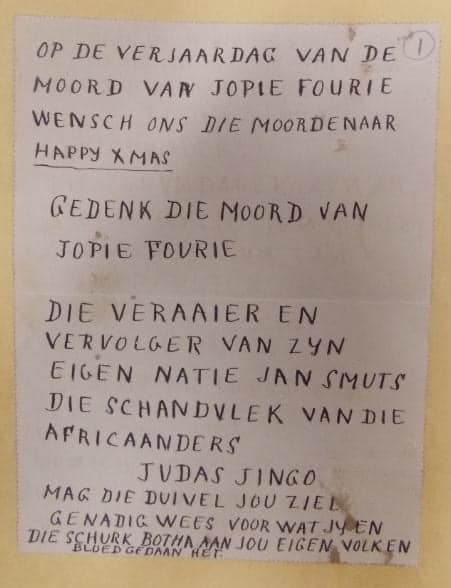 OP DE VERJAARDAG VAN DE
1
MOORD VAN JOPIE FOURIE
WENSCH ONS DIE MOORDENAAR
HAPPY XMAS
GEDENK DIE MOORD VAN
JOPIE FOURIE
DIE VERAAIER EN
VERVOLGER VAN ZYN
EIGEN NATIE JAN SMUTS
DIE SCHANDVLEK VAN DIE
AFRICAANDERS
JUDAS JINGO
MAG DIE DUIVEL JOU ZIEL
GENADIG WEES VOOR WAT JY EN
DIE SCHURK BOTHA AAN JOU EIGEN VOLK EN
BLOED GEDAAN HET.